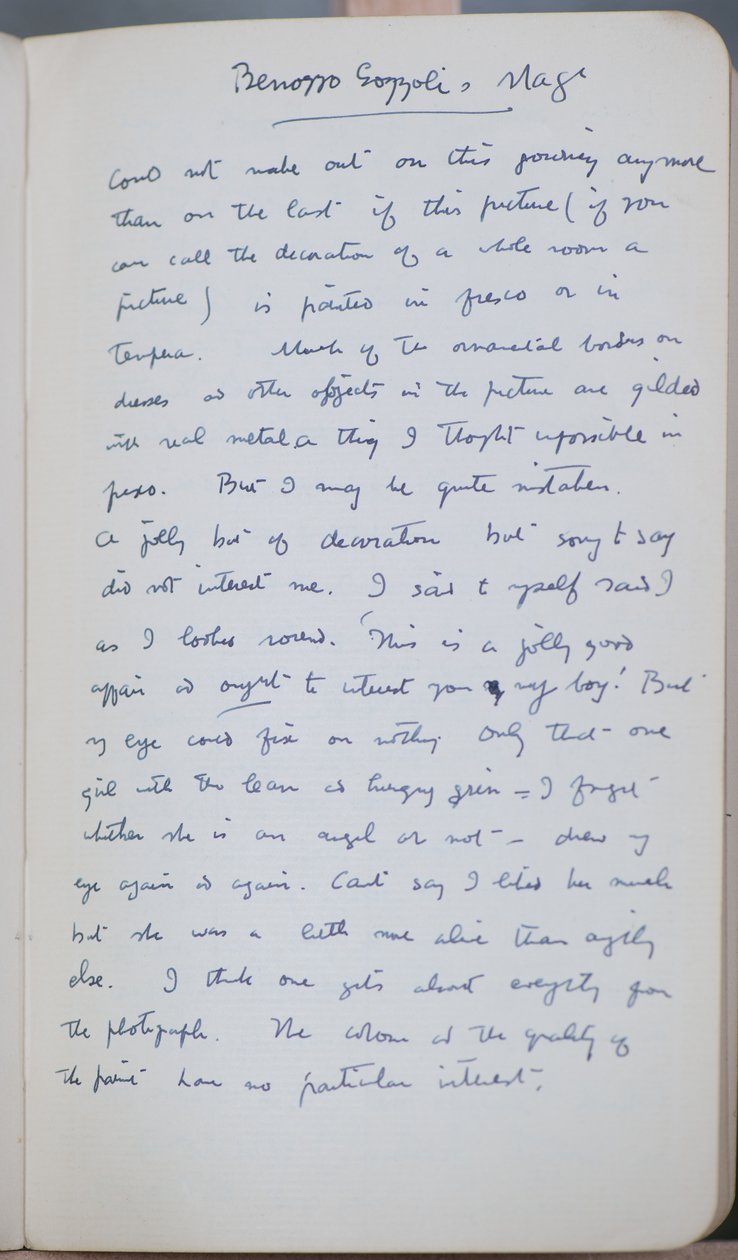 Benozzo Gozzoli's Magi
Could not make out on this journey anymore
than on the last if this picture (if you
can call the decoration of a whole room a
picture) is painted in fresco or in
tempera. Much of the ornamental borders on
dresses and other objects in the picture are gilded
with real metal, a thing I thought impossible in
fresco. But I may be quite mistaken.
A jolly bit of decoration but sorry to say
did not interest me. I said to myself said I
as I looked round. 'This is a jolly good
affair and ought to interest you my boy!' But
my eye could fix on nothing. Only that one
girl with the lean and hungry grin – I forget
whether she is an angel or not – drew my
eye again and again. Can't say I liked her much
but she was a little more alive than anything
else. I think one gets almost everything from
the photograph. The colour and the quality of
the paint have no particular interest.